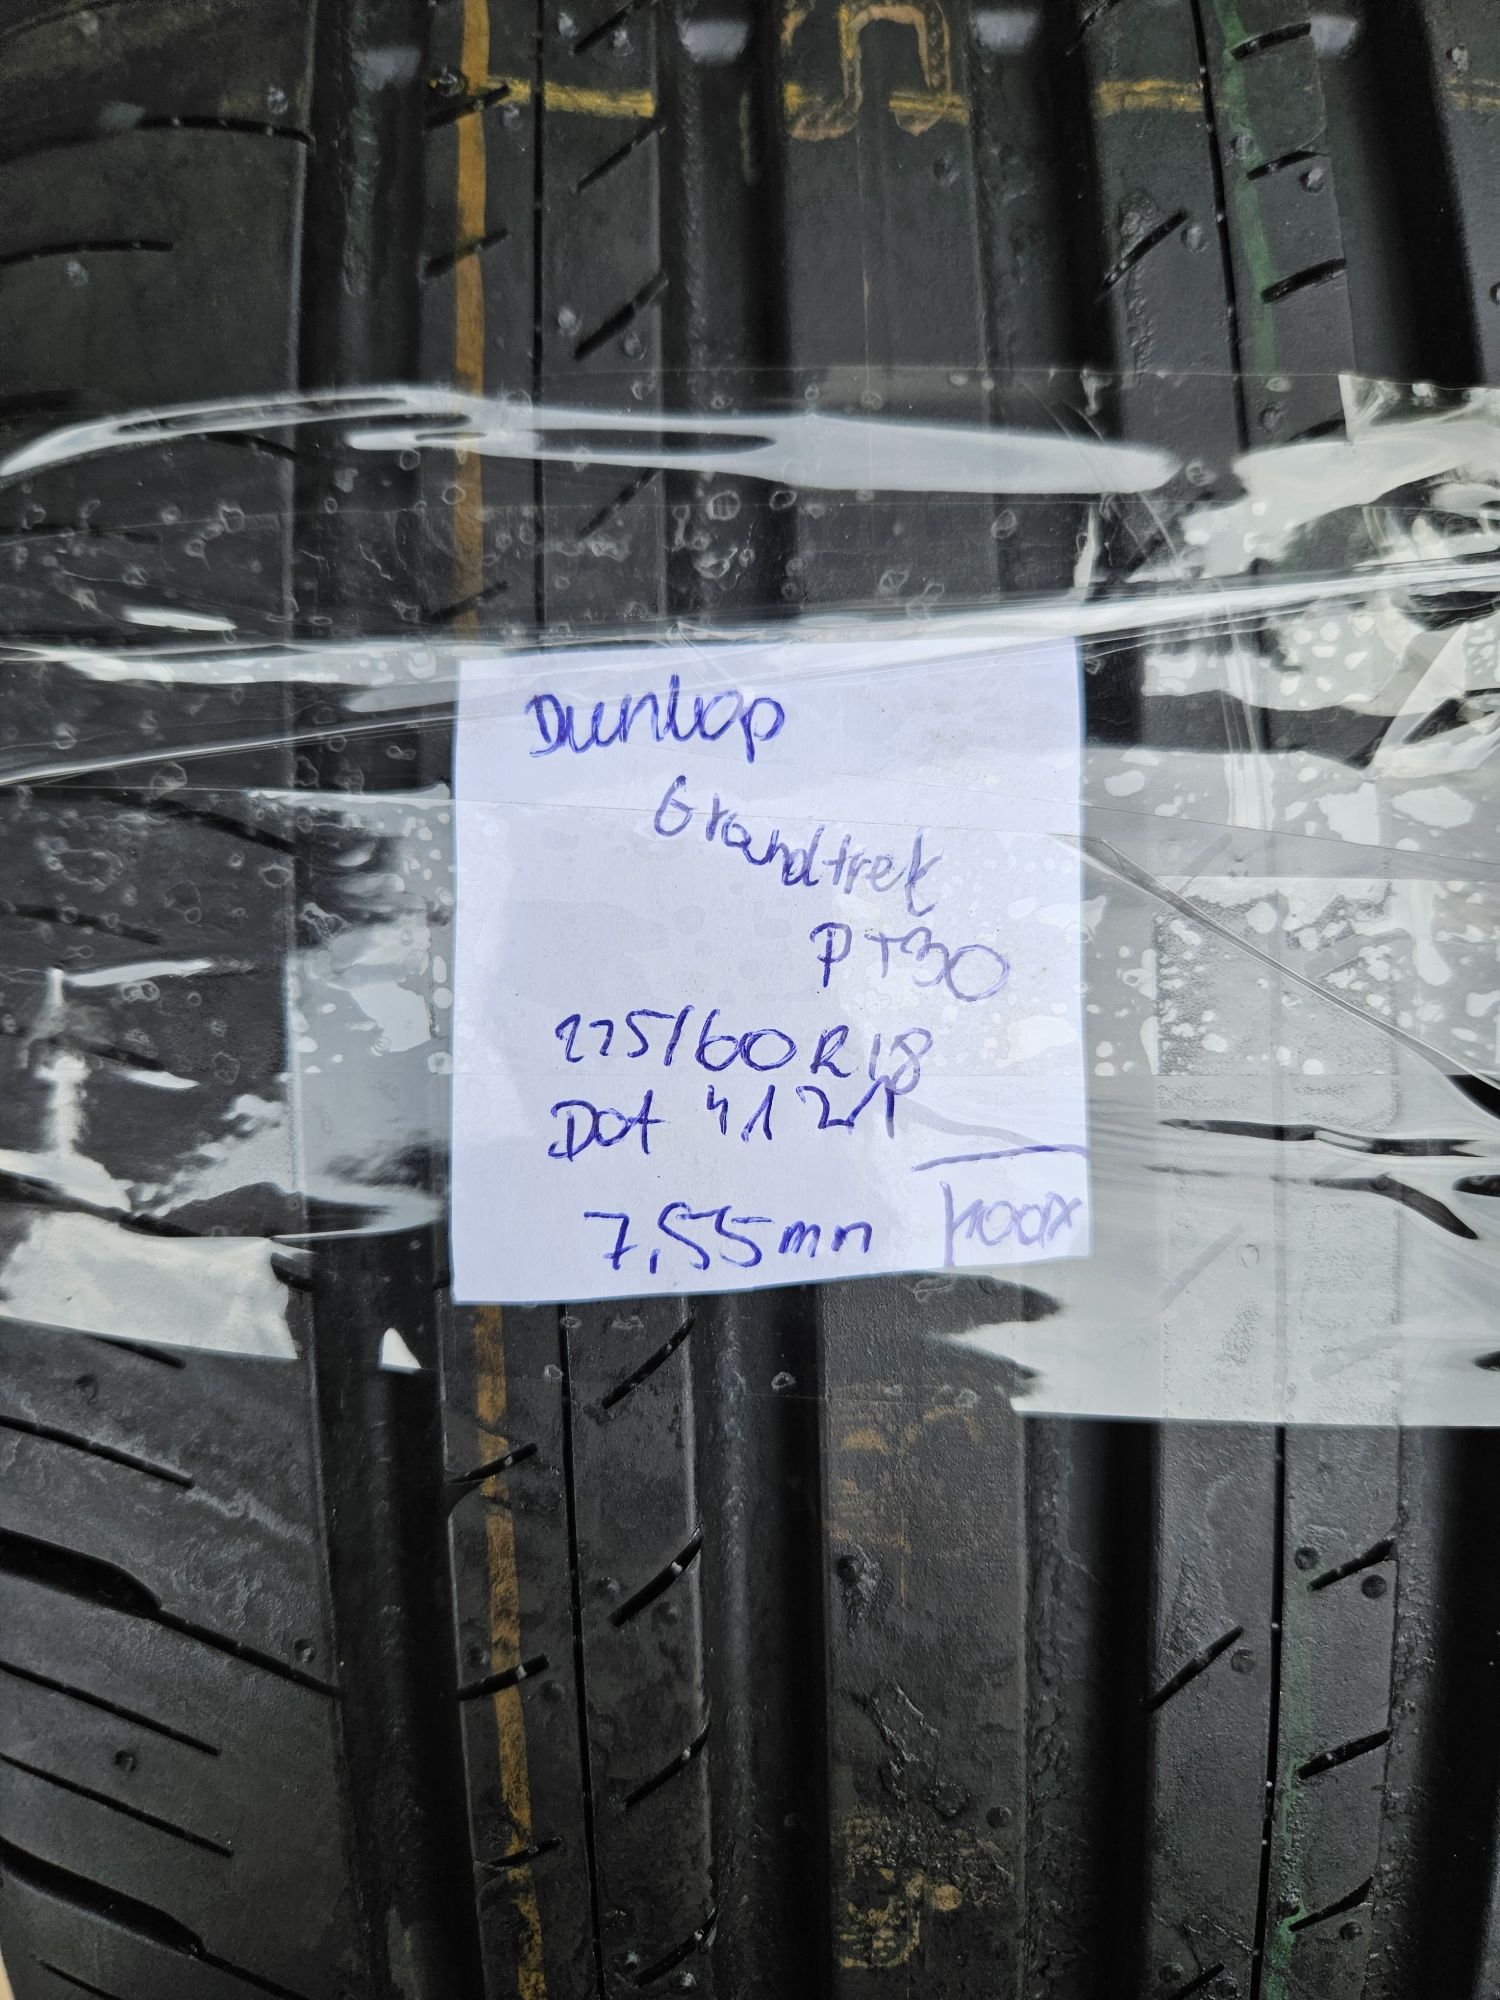 Dunlop
Grandtrek
PT30
225/60 R18
Dot 4121
7,55mm